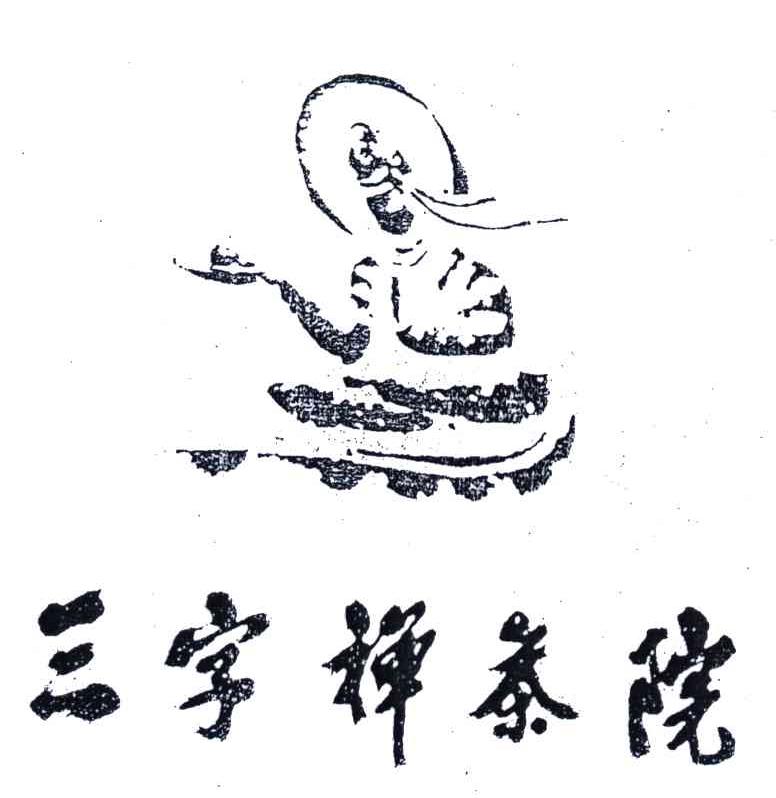 三字禅茶院